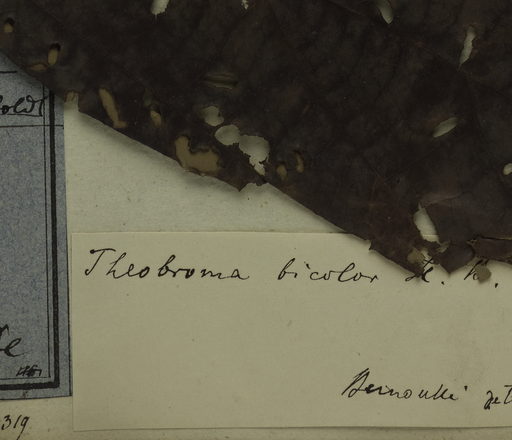 oldt
Theobroma bicolor H. K.
Bernoulli det
319